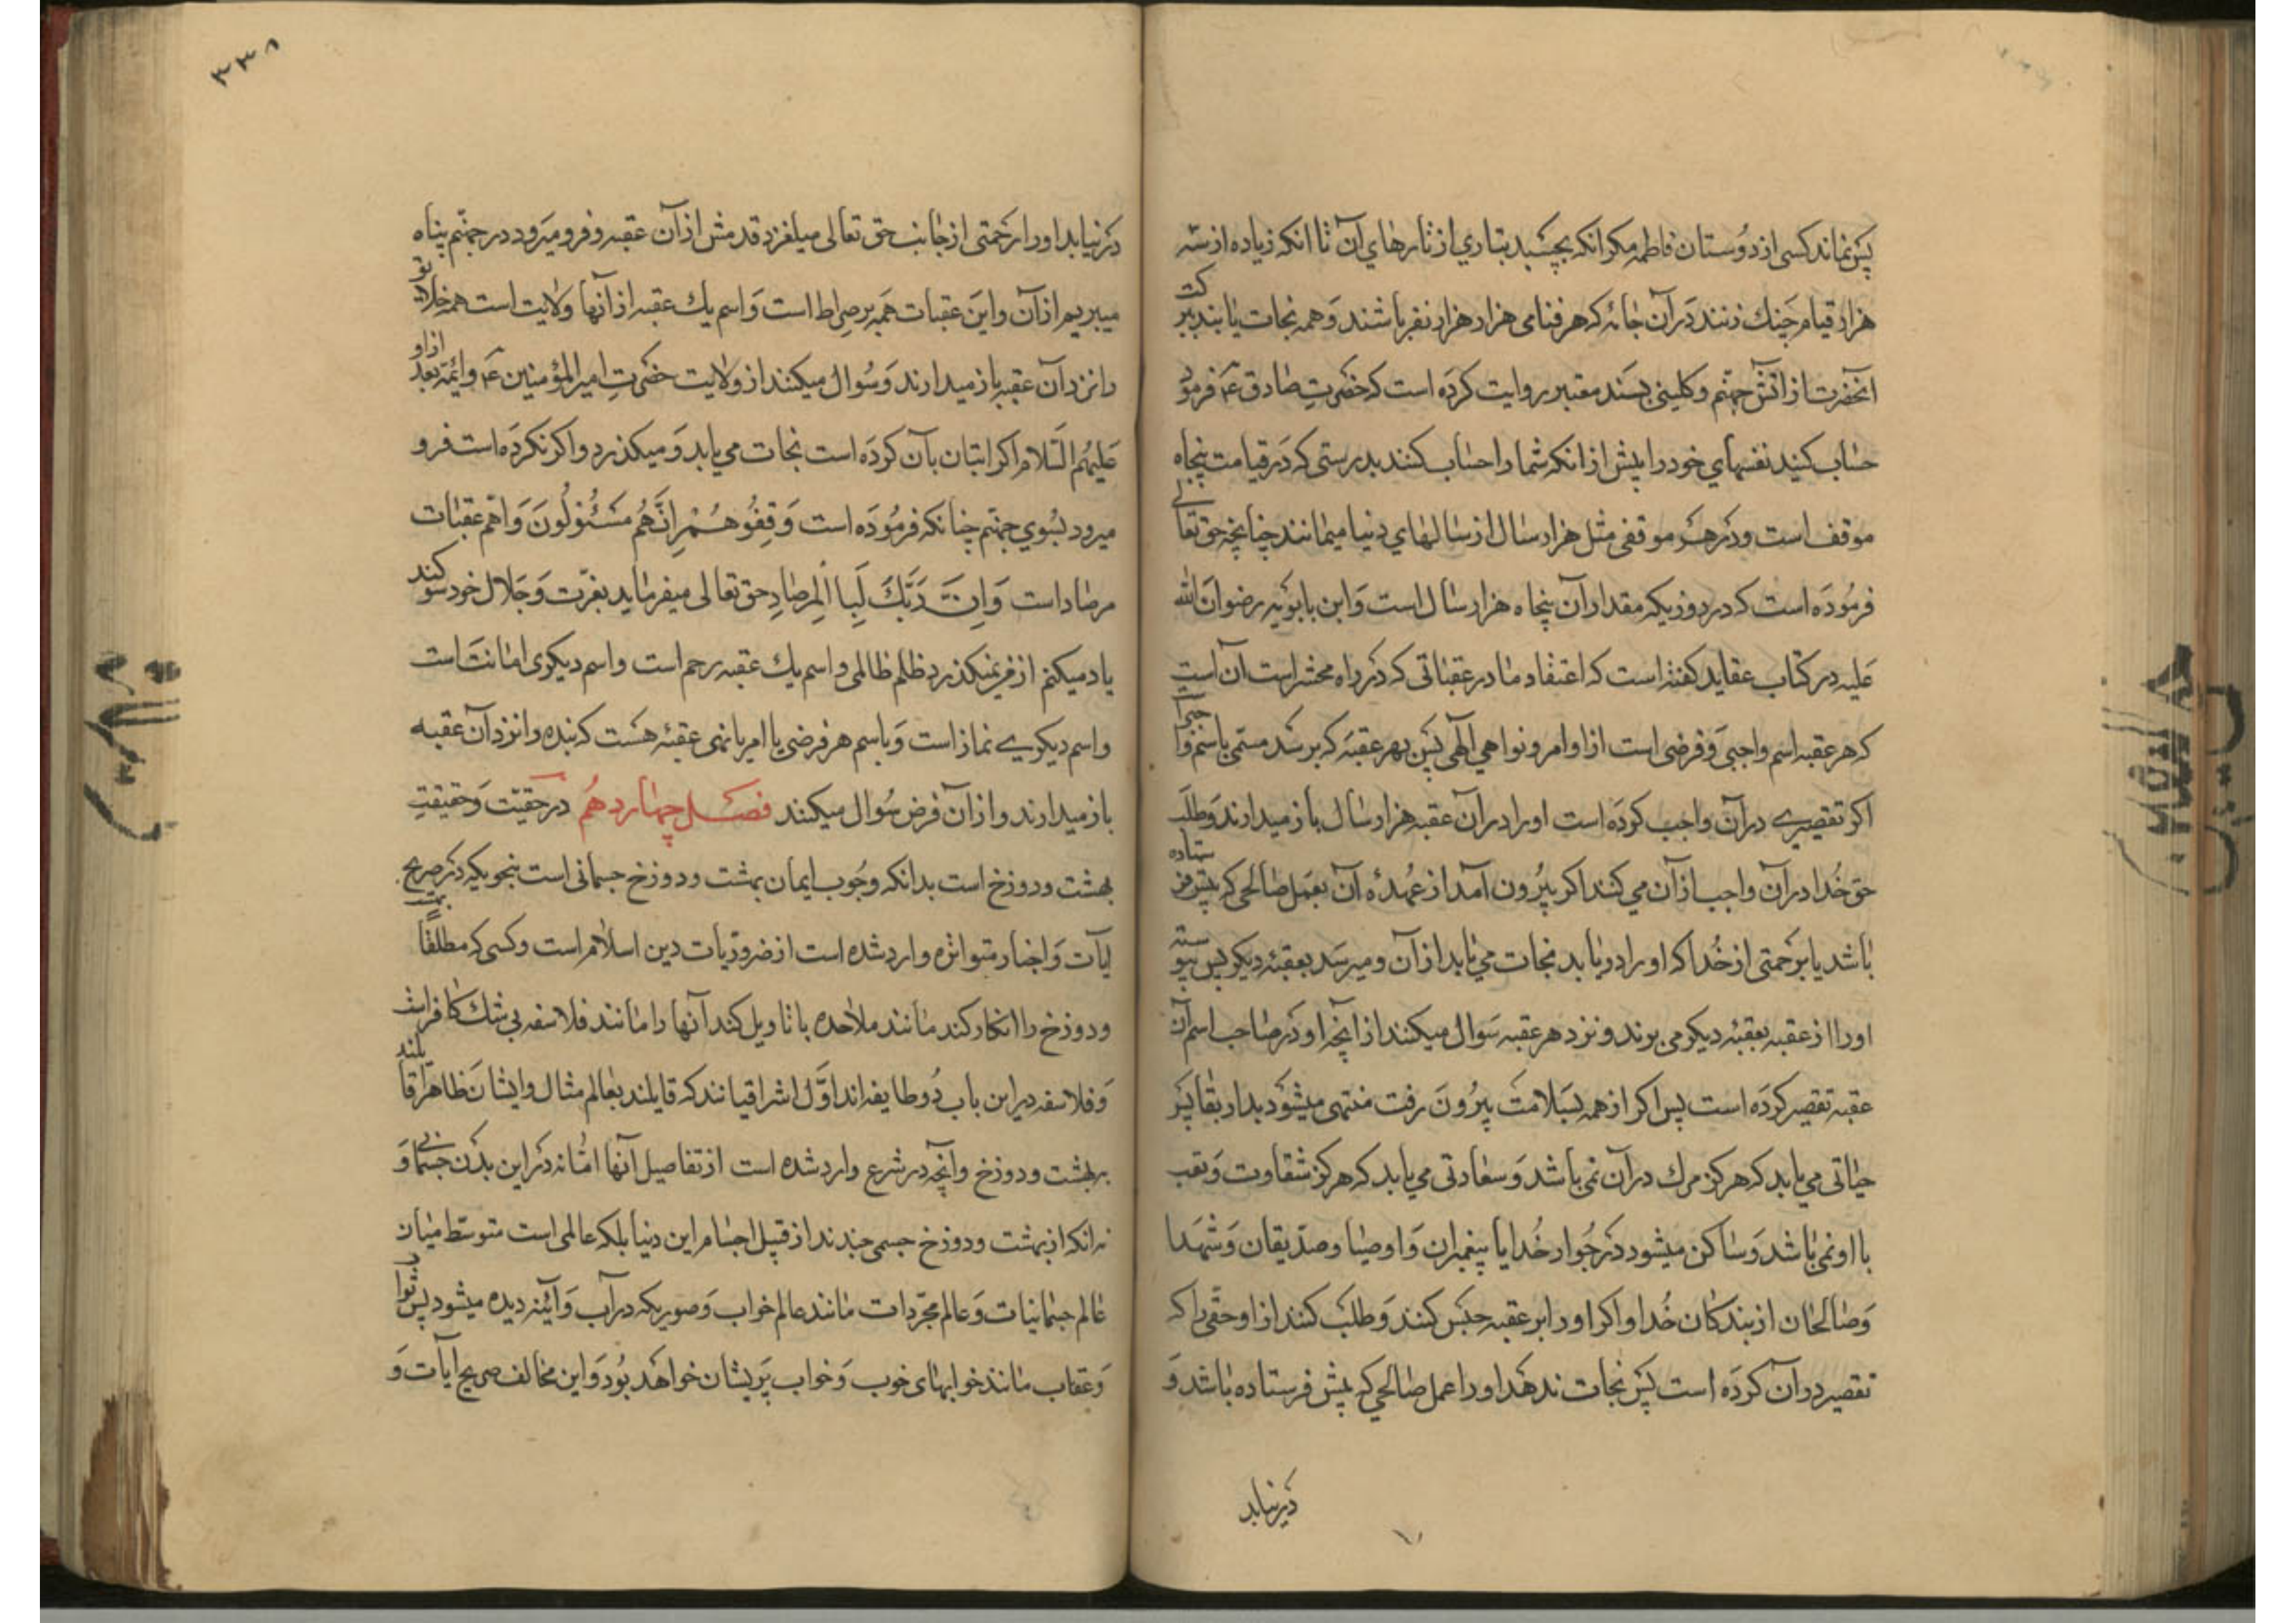 پس نماند کسی از دوستان فاطمه مکر انکه بچسبد بتاری از تارهای آن تا انکه زیاده از سه
هزار قیام چنك زنند در آن جامه که هر فئامی هزار هزار نفر باشند و همه نجات یابند ببرکت
آنحضرت از آتش جهنم و کلینی بسند معتبر روایت کرده است که حضرت صادق ع فرمود
حساب کنید نفسهای خود را پیش از انکه شما را حساب کنند بدرستی که در قیامت پنجاه
موقف است و در هر موقفی مثل هزار سال از سالهای دنیا میمانند چنانچه حق تعالی
فرموده است که در روزیکه مقدار آن پنجاه هزار سال است و ابن بابویه رضوان الله
علیه در کتاب عقاید کفته است که اعتقاد ما در عقباتی که در راه محشر است آن است
که هر عقبه اسم واجبی و فرضی است از اوامر و نواهی الهی پس بهر عقبه که برسد مسمی باسم واجبی
اکر تقصیری در آن واجب کرده است او را در آن عقبه هزار سال باز میدارند و طلب
حق خدا در آن واجب از آن می کنند اکر بیرون آمد از عهده آن بعمل صالحی که پیش فرستاده
باشد یا برحمتی از خدا که او را دریابد نجات می یابد از آن و میرسد بعقبه دیکر پس پیوسته
او را از عقبه بعقبه دیکر می برند و نزد هر عقبه سوال میکنند از آنچه او در صاحب اسم آن
عقبه تقصیر کرده است پس اکر از همه بسلامت بیرون رفت منتهی میشود بدار بقا پس
حیاتی می یابد که هرکز مرك در آن نمی باشد و سعادتی می یابد که هرکز شقاوت و تعب
با او نمی باشد و ساکن میشود در جوار خدا با پیغمبران و اوصیا و صدیقان و شهدا
و صالحان از بندکان خدا و اکر او را بر عقبه حبس کنند و طلب کنند از او حقی را که
تقصیر در آن کرده است پس نجات ندهد او را عمل صالحی که پیش فرستاده باشد و
در نیابد
۳۳۸
در نیابد او را رحمتی از جانب حق تعالی میلغزد قدمش از آن عقبه و فرو میرود در جهنم پناه
میبریم از آن و این عقبات همه بر صراط است و اسم یك عقبه از آنها ولایت است همه خلایق
را نزد آن عقبه باز میدارند و سوال میکنند از ولایت حضرت امیر المؤمنین ع و ائمه بعد از او
علیهم السلام اکر اتیان بآن کرده است نجات می یابد و میکذرد و اکر نکرده است فرو
میرود بسوی جهنم چنانکه فرموده است وَقِفُوهُمْ اِنَّهُم مَسْئُولُونَ و اهم عقبات
مرصاد است وَاِنَّ رَبَّكَ لَبِا الْمِرصَادِ حق تعالی میفرماید بعزت و جلال خود سوکند
یاد میکنم از من نمیکذرد ظلم ظالمی و اسم یك عقبه رحم است و اسم دیکری امانت است
و اسم دیکری نماز است و باسم هر فرضی یا امر یا نهی عقبه هست که بنده را نزد آن عقبه
باز میدارند و از آن فرض سوال میکنند فصل چهاردهم در حقیت و حقیقت
بهشت و دوزخ است بدانکه وجوب ایمان بهشت و دوزخ جسمانی است بنحویکه در صریح
ایات و اخبار متواتره وارد شده است از ضروریات دین اسلام است و کسی که مطلقا بهشت
و دوزخ را انکار کند مانند ملاحده یا تاویل کند آنها را مانند فلاسفه بی شك کافر است
و فلاسفه در این باب دو طایفه اند اول اشراقیانند که قایلند بعالم مثال و ایشان ظاهرا قایلند
بهشت و دوزخ و آنچه در شرع وارد شده است از تفاصیل آنها اما نه در این بدن جسمانی و
نه انکه از بهشت و دوزخ جسمی چندند از قبیل اجسام این دنیا بلکه عالمی است متوسط میان
عالم جسمانیات و عالم مجردات مانند عالم خواب و صوریکه در آب و آئینه دیده میشود پس ثواب
و عقاب مانند خوابهای خوب و خواب پریشان خواهد بود و این مخالف صریح ایات و